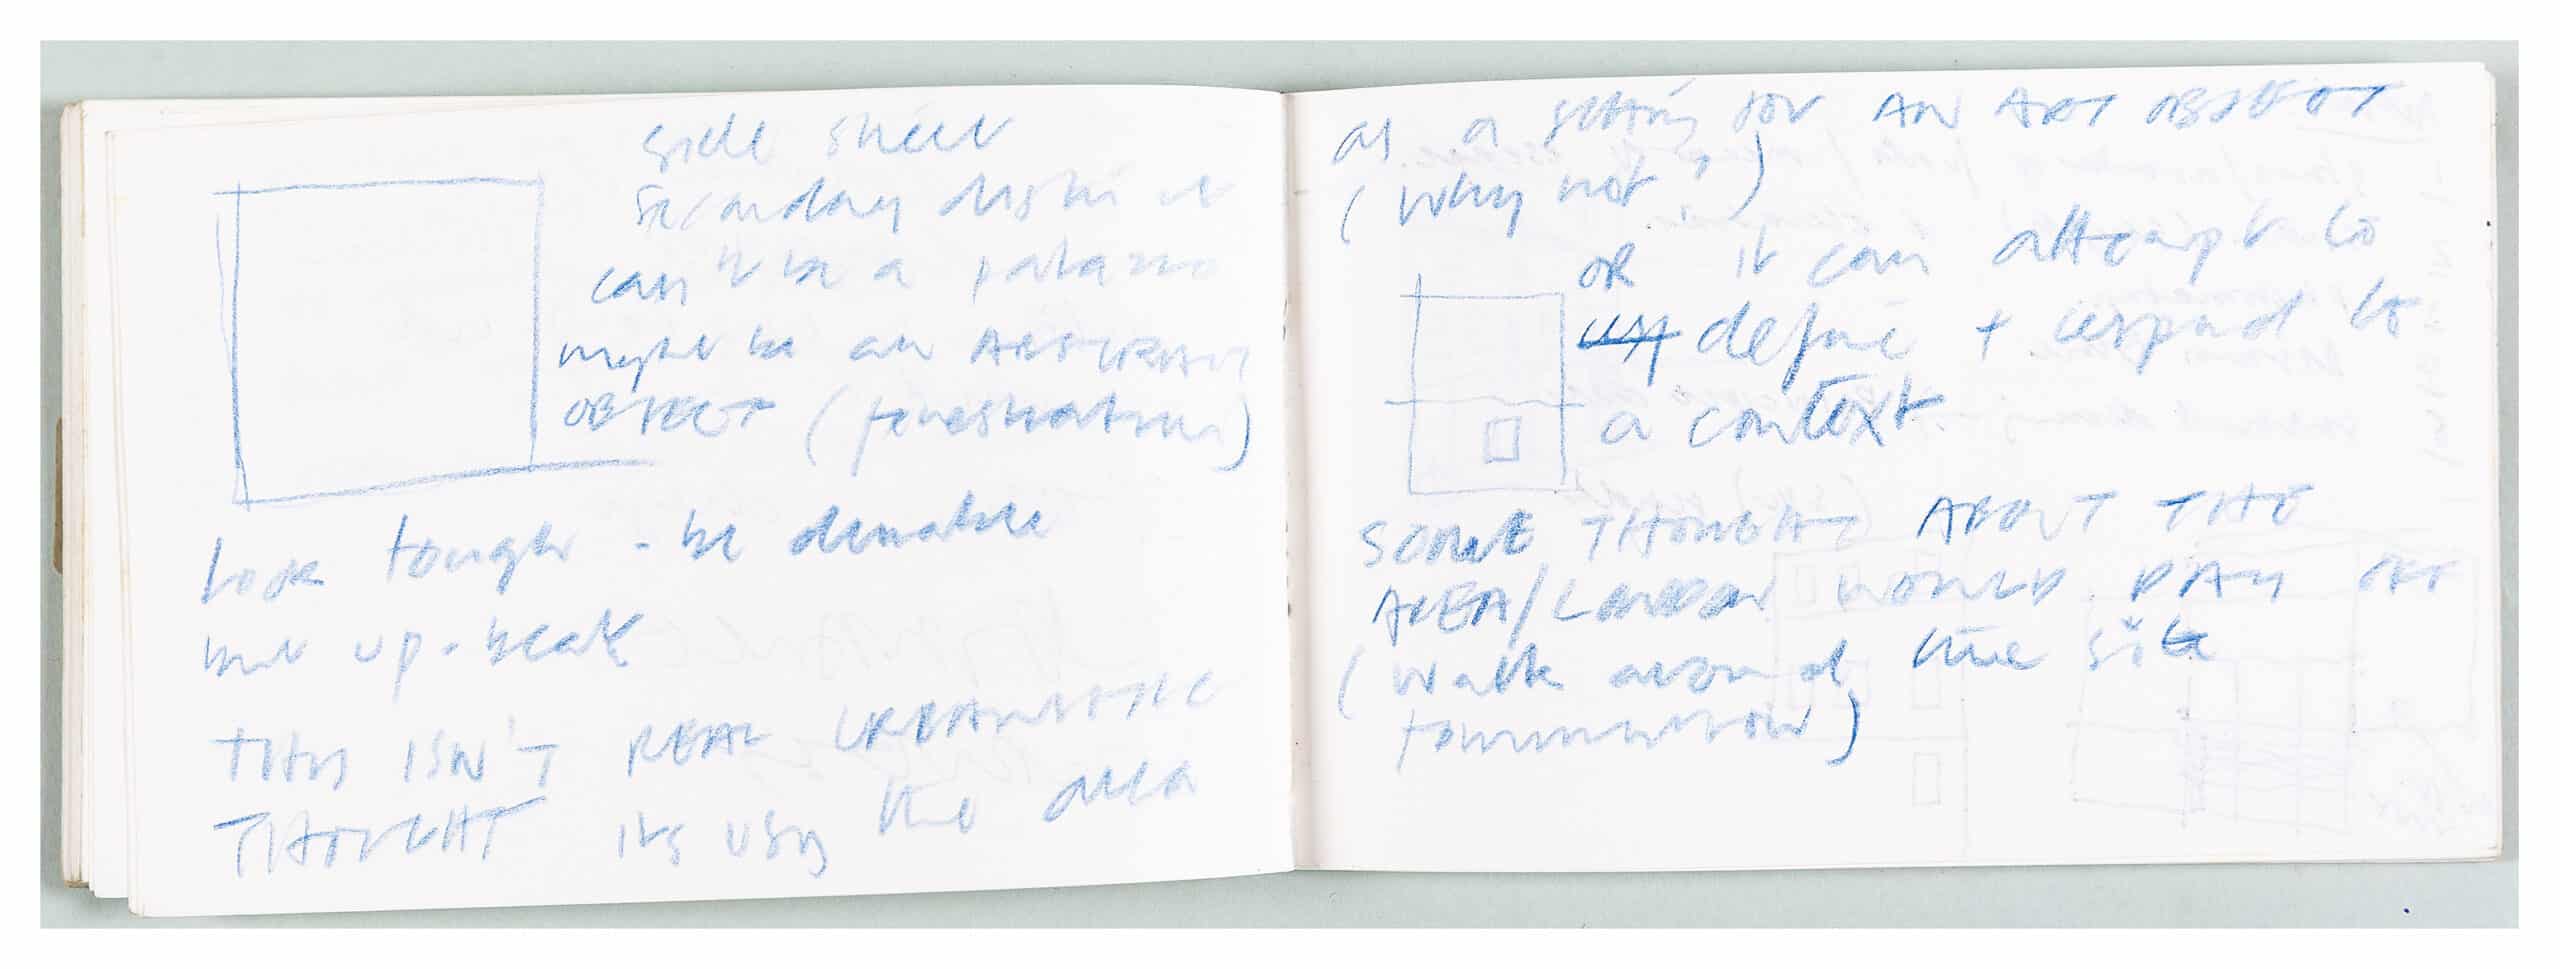 side street
secondary district
can't be a palazzo
might be an ABSTRACT
OBJECT (fenestration)
look tough - be durable
but up-beat
THIS ISN'T REAL URBANISTIC
THOUGHT its using the area
as a setting for AN ART OBJECT
(why not?)
OR it can attempt to
define + respond to
a context
SOME THOUGHT ABOUT THE
AREA/LONDON WOULD PAY OFF
(walk around the site
tommorrow)